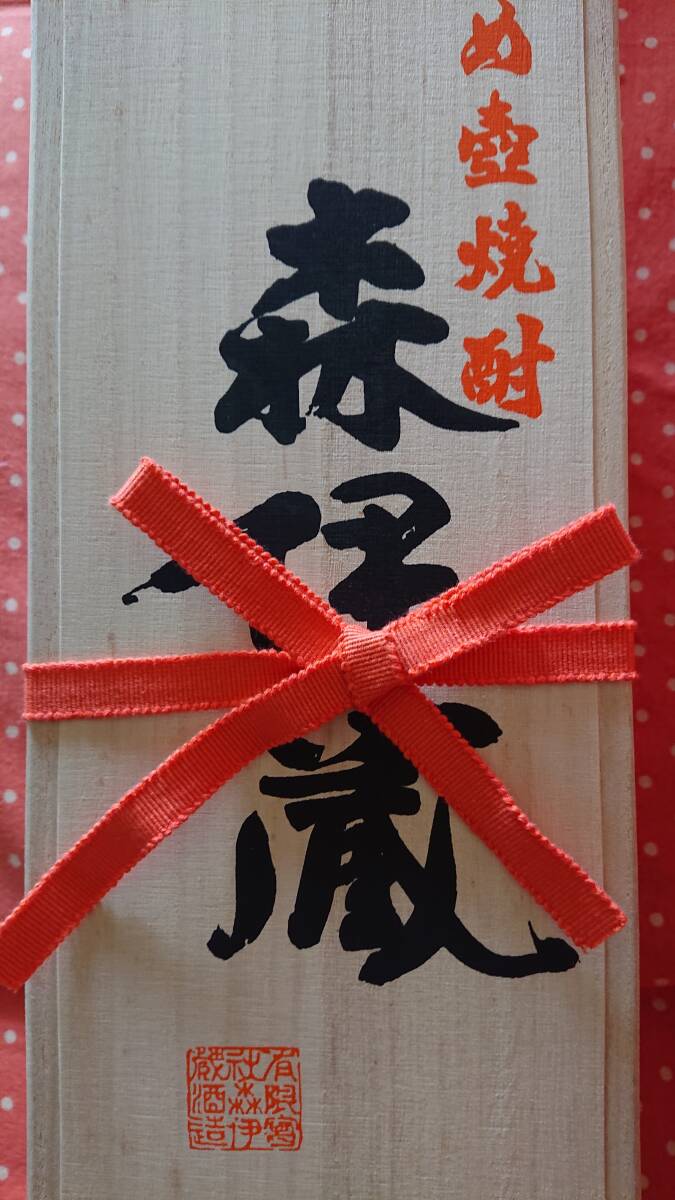 め壺焼酎
森伊蔵
有限會
社森伊
蔵酒造